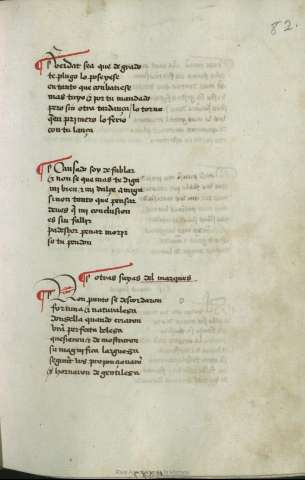 82.
Verdat sea que de grado
te plugo lo poseyese
en tanto que conbatiese
mas tuyo & por tu mandado
pero sin otra tardança lo torno
quien primero lo ferio
con tu lança
Cansado soy de fablar
& non se que mas te diga
mi bien & mi dulçe amiga
si non tanto que pensar
deues que mi conclusion
es sin fallir
padesçer penar morir
so tu pendon
otras suyas del marques
Non punto se discordaron
fortuna & naturalesa
donsella quando criaron
una perfecta belesa
quesieron & demostraron
su magnifica larguesa
segunt vos proporcionaron
& hornaron de gentilesa